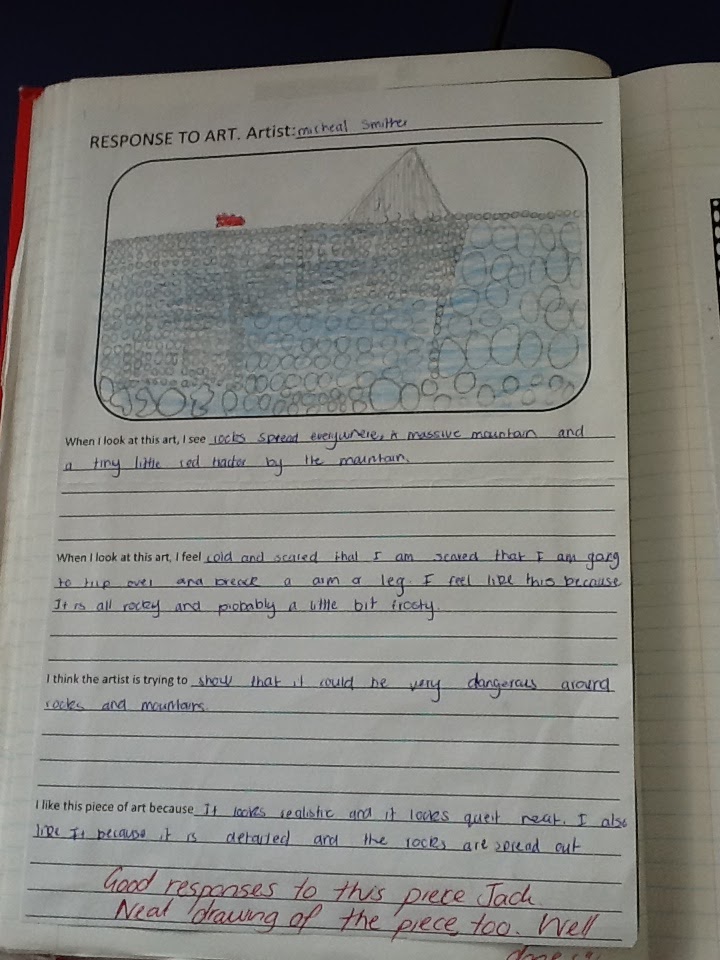 RESPONSE TO ART. Artist: micheal Smither
When I look at this art, I see rocks spread everywhere, A massive mountain and
a tiny little red tractor by the mountain.
When I look at this art, I feel cold and scared that I am scared that I am gong
to trip over and breack a arm or leg. I feel like this because
It is all rocky and probably a little bit frosty.
I think the artist is trying to show that it could be very dangerous around
rocks and mountains.
I like this piece of art because It looks realistic and it looks queit neat. I also
like It because it is detailed and the rocks are spread out
Good responses to this piece Jack.
Neat drawing of the piece too. Well
done